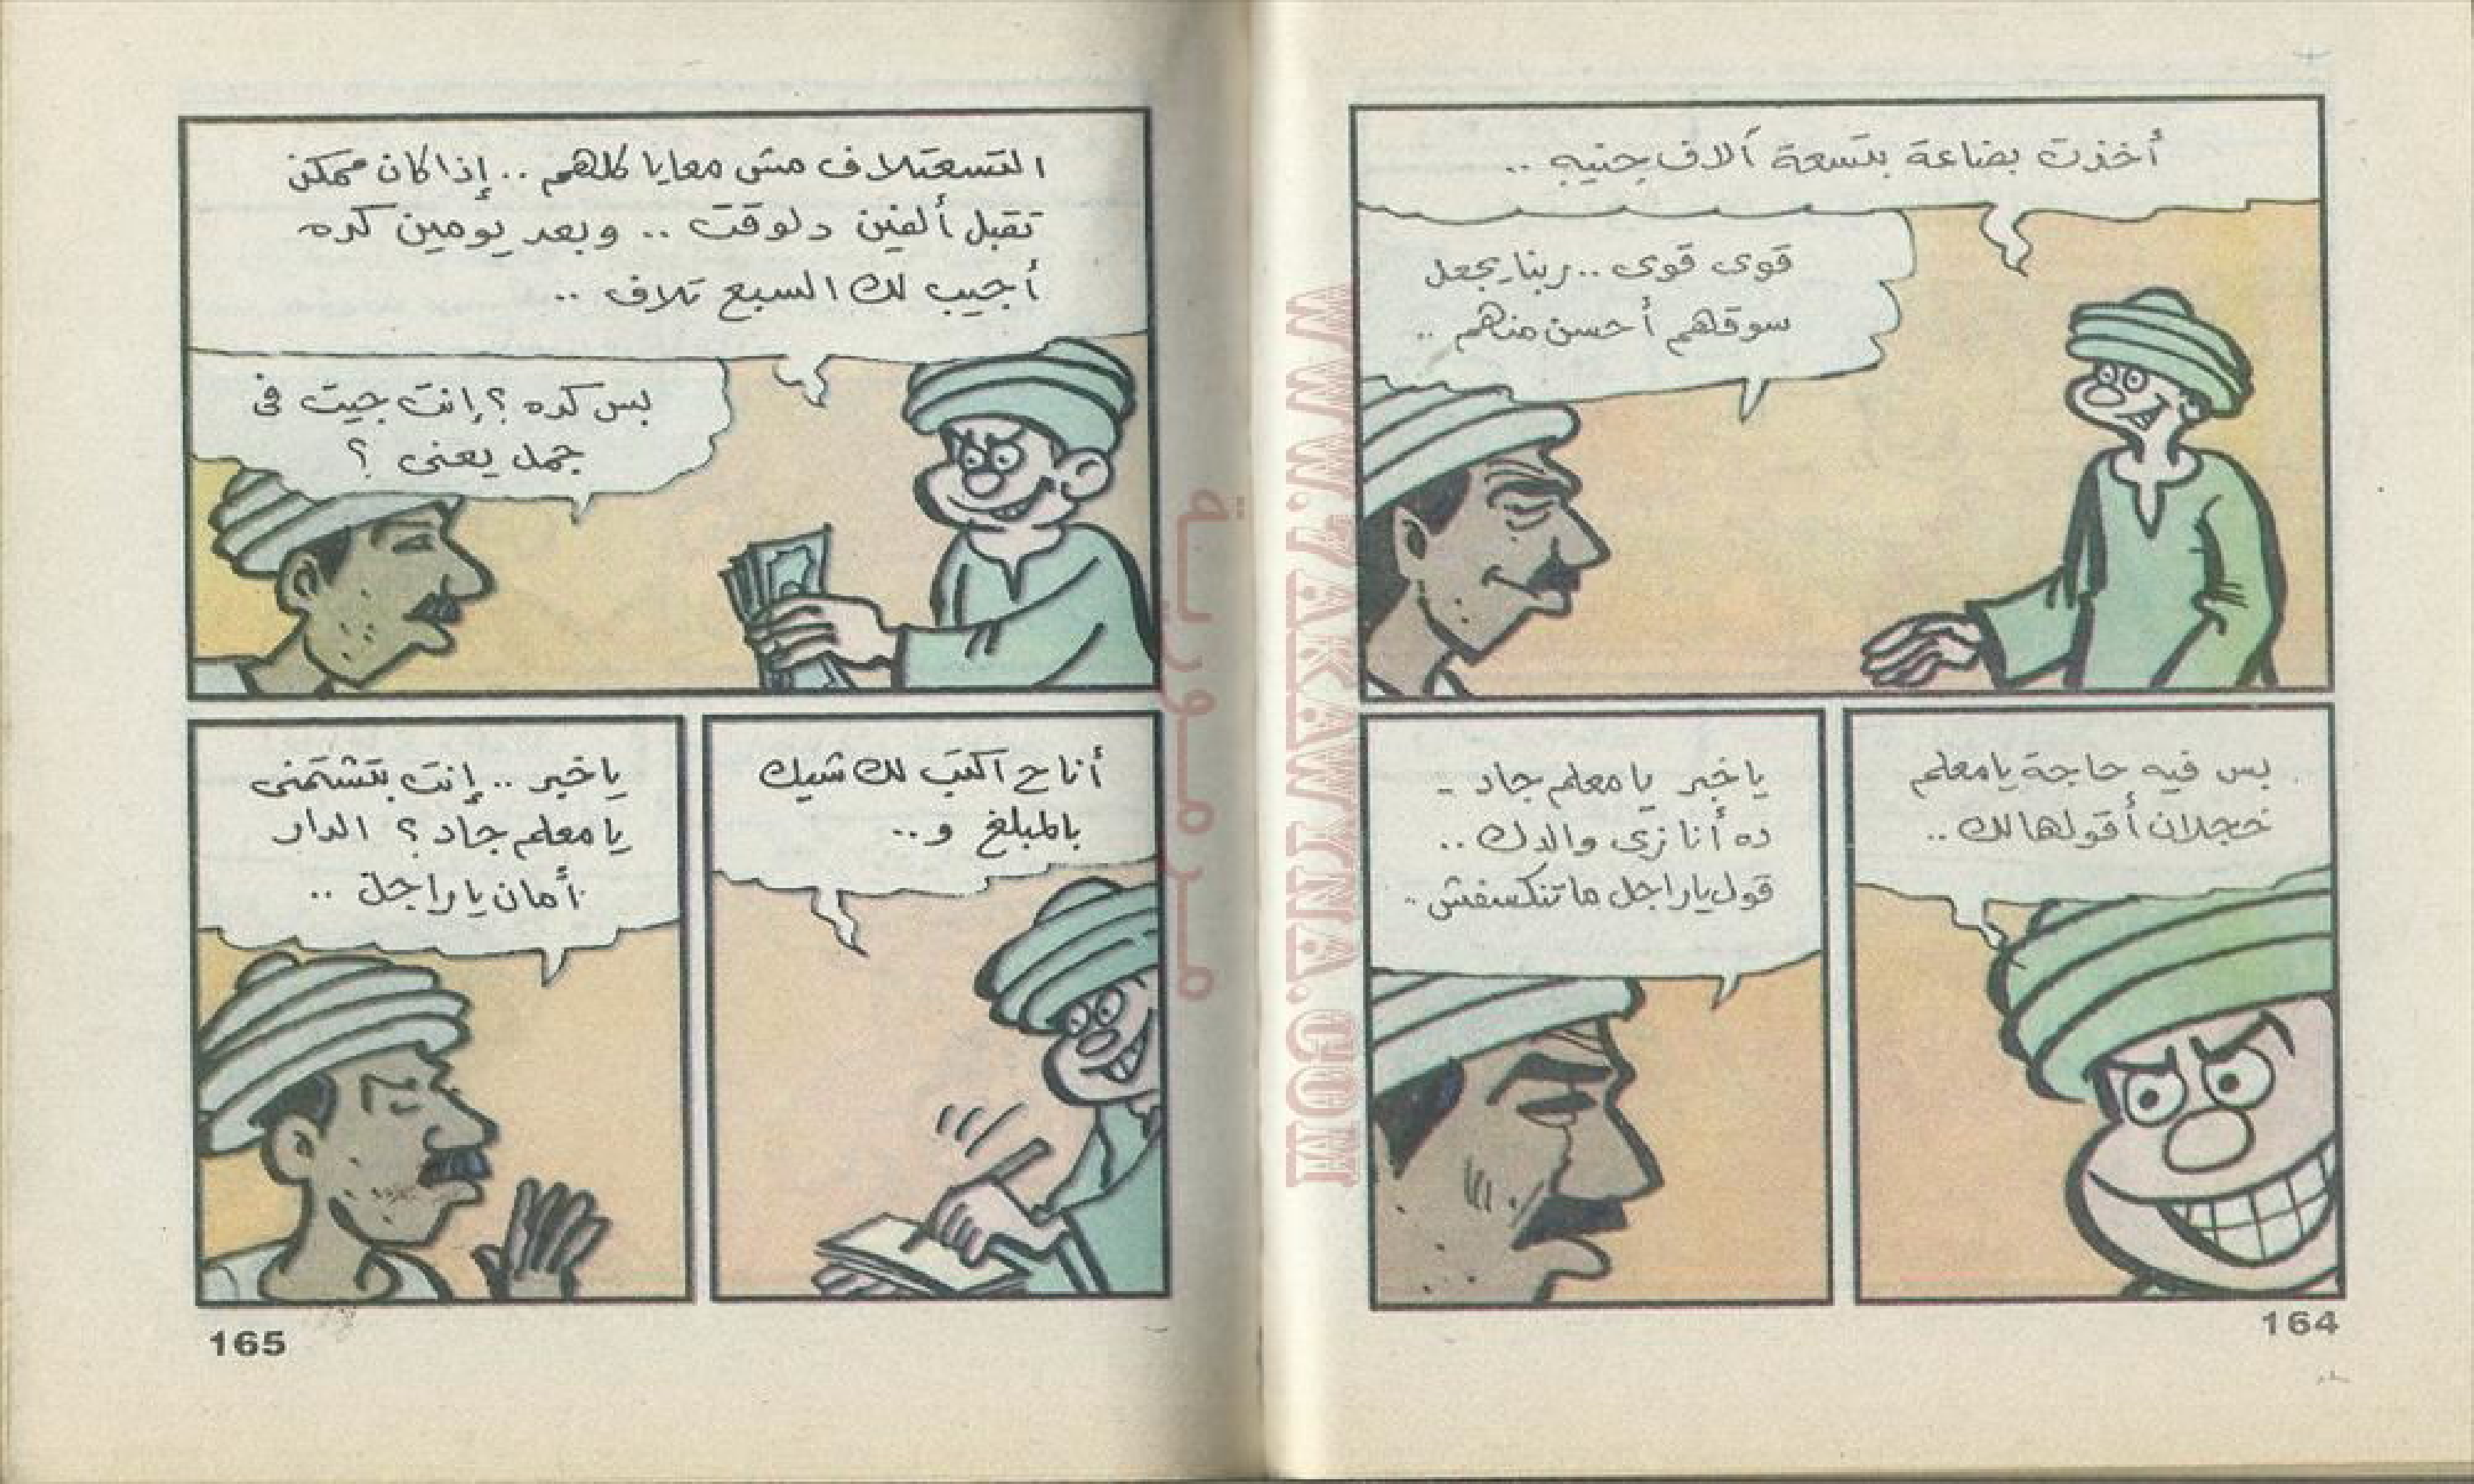 أخذت بضاعة بتسعة آلاف جنيه ..
قوى قوى .. ربنا يجعل
سوقهم أحسن منهم ..
بس فيه حاجة يا معلم
خجلان أقولها لك ..
يا خبر يا معلم جاد ..
ده أنا زى والدك ..
قول يا راجل ما تنكسفش ..
164
التسعتلاف مش معايا كلهم .. إذا كان ممكن
تقبل ألفين دلوقت .. وبعد يومين كده
أجيب لك السبع تلاف ..
بس كده ؟ إنت جيت فى
جمل يعنى ؟
أنا ح أكتب لك شيك
بالمبلغ و ..
يا خبر .. إنت بتشتمنى
يا معلم جاد ؟ الدار
أمان يا راجل ..
165
مرمورية
WWW.ARAKAWNA.COM